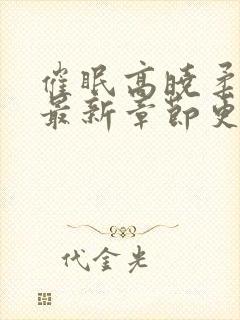 催眠高晓柔
最新章节更
代金光